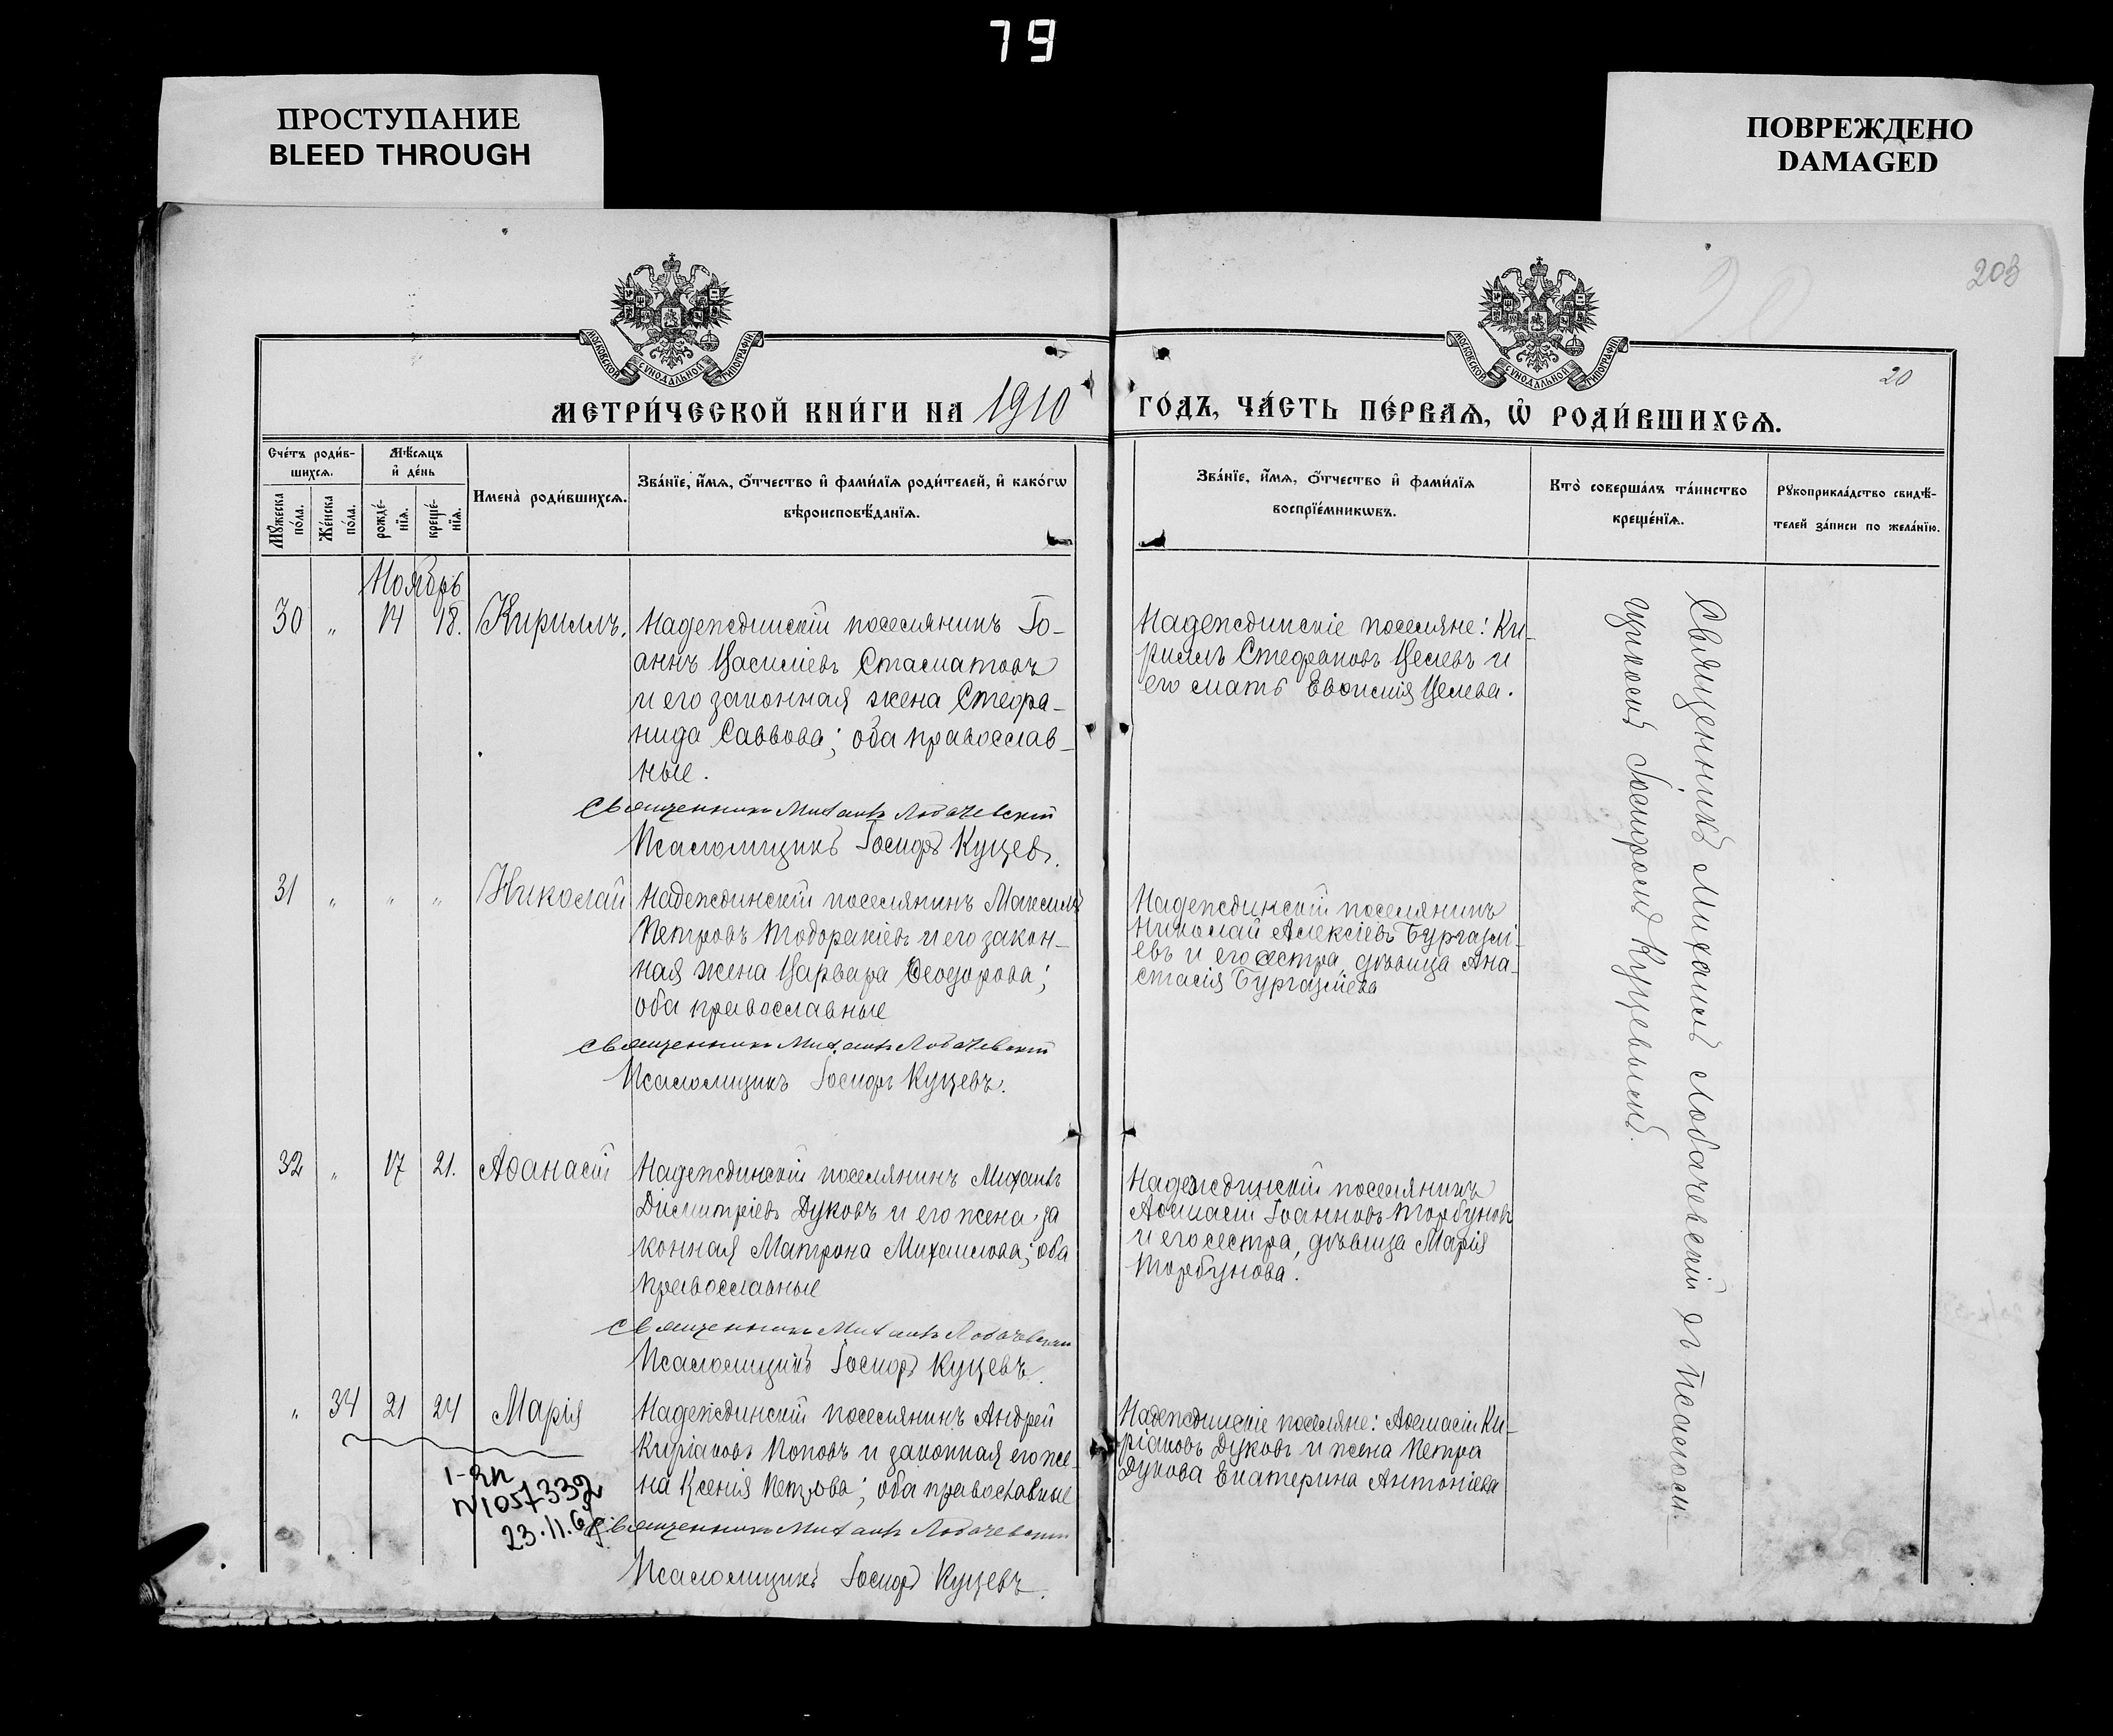 79
ПРОСТУПАНИЕ
BLEED THROUGH
ПОВРЕЖДЕНО
DAMAGED
203
20
20
МОСКОВСКОЙ СѴНОДАЛЬНОЙ ТИПОГРАФІИ.
МОСКОВСКОЙ СѴНОДАЛЬНОЙ ТИПОГРАФІИ.
МЕТРИ́ЧЕСКОЙ КНИ́ГИ НА 1910
ГО́ДЪ, ЧА́СТЬ ПЕ́РВАЯ, Ѡ҆ РОДИ́ВШИХСЯ.
Сче́тъ роди́в-
шихся.
Мѣ́сяцъ
и҆ де́нь
Мꙋ́жеска
по́ла.
Же́нска
по́ла.
рожде́-
нїя.
креще́-
нїя.
Имена̀ роди́вшихся.
Зва́нїе, и҆́мя, ѻ҆́тчество и҆ фами́лїя роди́телей, и҆ како́гѡ
вѣроисповѣ́данїя.
Зва́нїе, и҆́мя, ѻ҆́тчество и҆ фами́лїя
воспрїе́мникѡвъ.
Кто̀ соверша́лъ та́инство
креще́нїя.
Рꙋкоприкла́дство свидѣ́-
телей за́писи по жела́нїю.
Ноябрь
30 „ 14 18. Кириллъ.
Надеждинскій поселянинъ Іо-
аннъ Василіевъ Стаматовъ
и его законная жена Стефа-
нида Саввова; оба православ-
ные.
Священникъ Михаилъ Лобачевскій
Псаломщикъ Іосифъ Куцевъ.
Надеждинскіе поселяне: Ки-
риллъ Стефановъ Целевъ и
его мать Евфимія Целева.
Священникъ Михаилъ Лобачевскій съ псалом-
щикомъ Іосифомъ Куцевымъ.
31 „ „ „ Николай
Надеждинскій поселянинъ Максимъ
Петровъ Тодоракіевъ и его закон-
ная жена Варвара Ѳеодорова;
оба православные
Священникъ Михаилъ Лобачевскій
Псаломщикъ Іосифъ Куцевъ.
Надеждинскій поселянинъ
Николай Алексіевъ Бургазлі-
евъ и его сестра, дѣвица Ана-
стасія Бургазліева
32 „ 17 21. Аѳанасій
Надеждинскій поселянинъ Михаилъ
Димитріевъ Дуковъ и его жена за
конная Матрона Михаилова; оба
православные
Священникъ Михаилъ Лобачевскій
Псаломщикъ Іосифъ Куцевъ.
Надеждинскій поселянинъ
Аѳанасій Іоанновъ Торбуновъ
и его сестра, дѣвица Марія
Торбунова.
„ 34 21 24 Марія
Надеждинскій поселянинъ Андрей
Киріаковъ Поповъ и законная его же-
на Ксенія Петрова; оба православные
Священникъ Михаилъ Лобачевскій
Псаломщикъ Іосифъ Куцевъ.
Надеждинскіе поселяне: Аѳанасій Ки-
ріаковъ Дуковъ и жена Петра
Дукова Екатерина Антоніева
N1057332
23.11.6